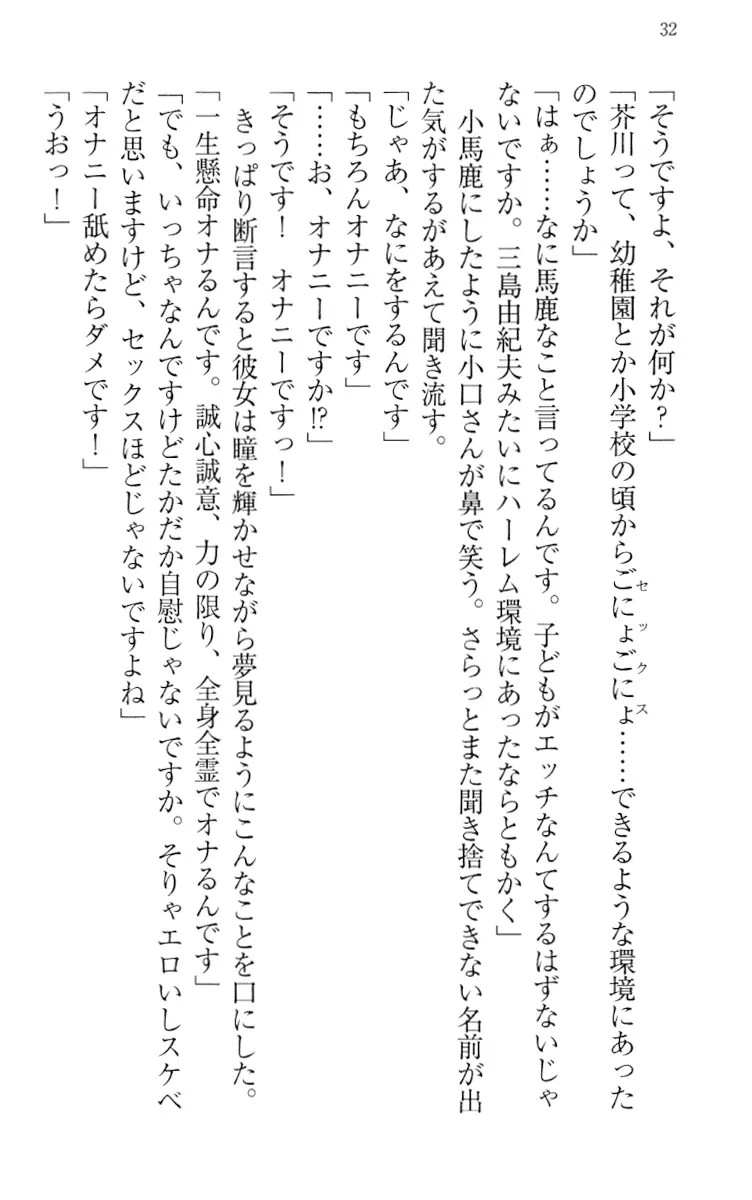 32
「そうですよ、それが何か？」
「芥川って、幼稚園とか小学校の頃からごにょごにょ……できるような環境にあった
セックス
のでしょうか」
「はぁ……なに馬鹿なこと言ってるんです。子どもがエッチなんてするはずないじゃ
ないですか。三島由紀夫みたいにハーレム環境にあったならともかく」
　小馬鹿にしたように小口さんが鼻で笑う。さらっとまた聞き捨てできない名前が出
た気がするがあえて聞き流す。
「じゃあ、なにをするんです」
「もちろんオナニーです」
「……お、オナニーですか⁉」
「そうです！　オナニーですっ！」
　きっぱり断言すると彼女は瞳を輝かせながら夢見るようにこんなことを口にした。
「一生懸命オナるんです。誠心誠意、力の限り、全身全霊でオナるんです」
「でも、いっちゃなんですけどたかだか自慰じゃないですか。そりゃエロいしスケベ
だと思いますけど、セックスほどじゃないですよね」
「オナニー舐めたらダメです！」
「うおっ！」